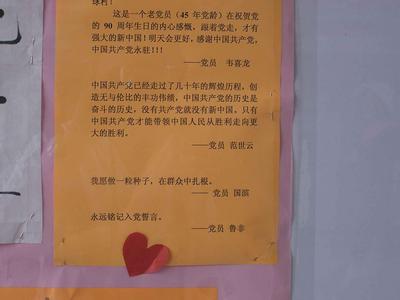 球村！
这是一个老党员（45 年党龄）在祝贺党
的 90 周年生日的内心感慨，跟着党走，才有
强大的新中国！明天会更好，感谢中国共产党，
中国共产党永驻!!!
——党员 韦喜龙
中国共产党已经走过了几十年的辉煌历程，创
造无与伦比的丰功伟绩，中国共产党的历史是
奋斗的历史，没有共产党就没有新中国。只有
中国共产党才能带领中国人民从胜利走向更
大的胜利。
——党员 范世云
我愿做一粒种子，在群众中扎根。
—— 党员 国滨
永远铭记入党誓言。
——党员 鲁非